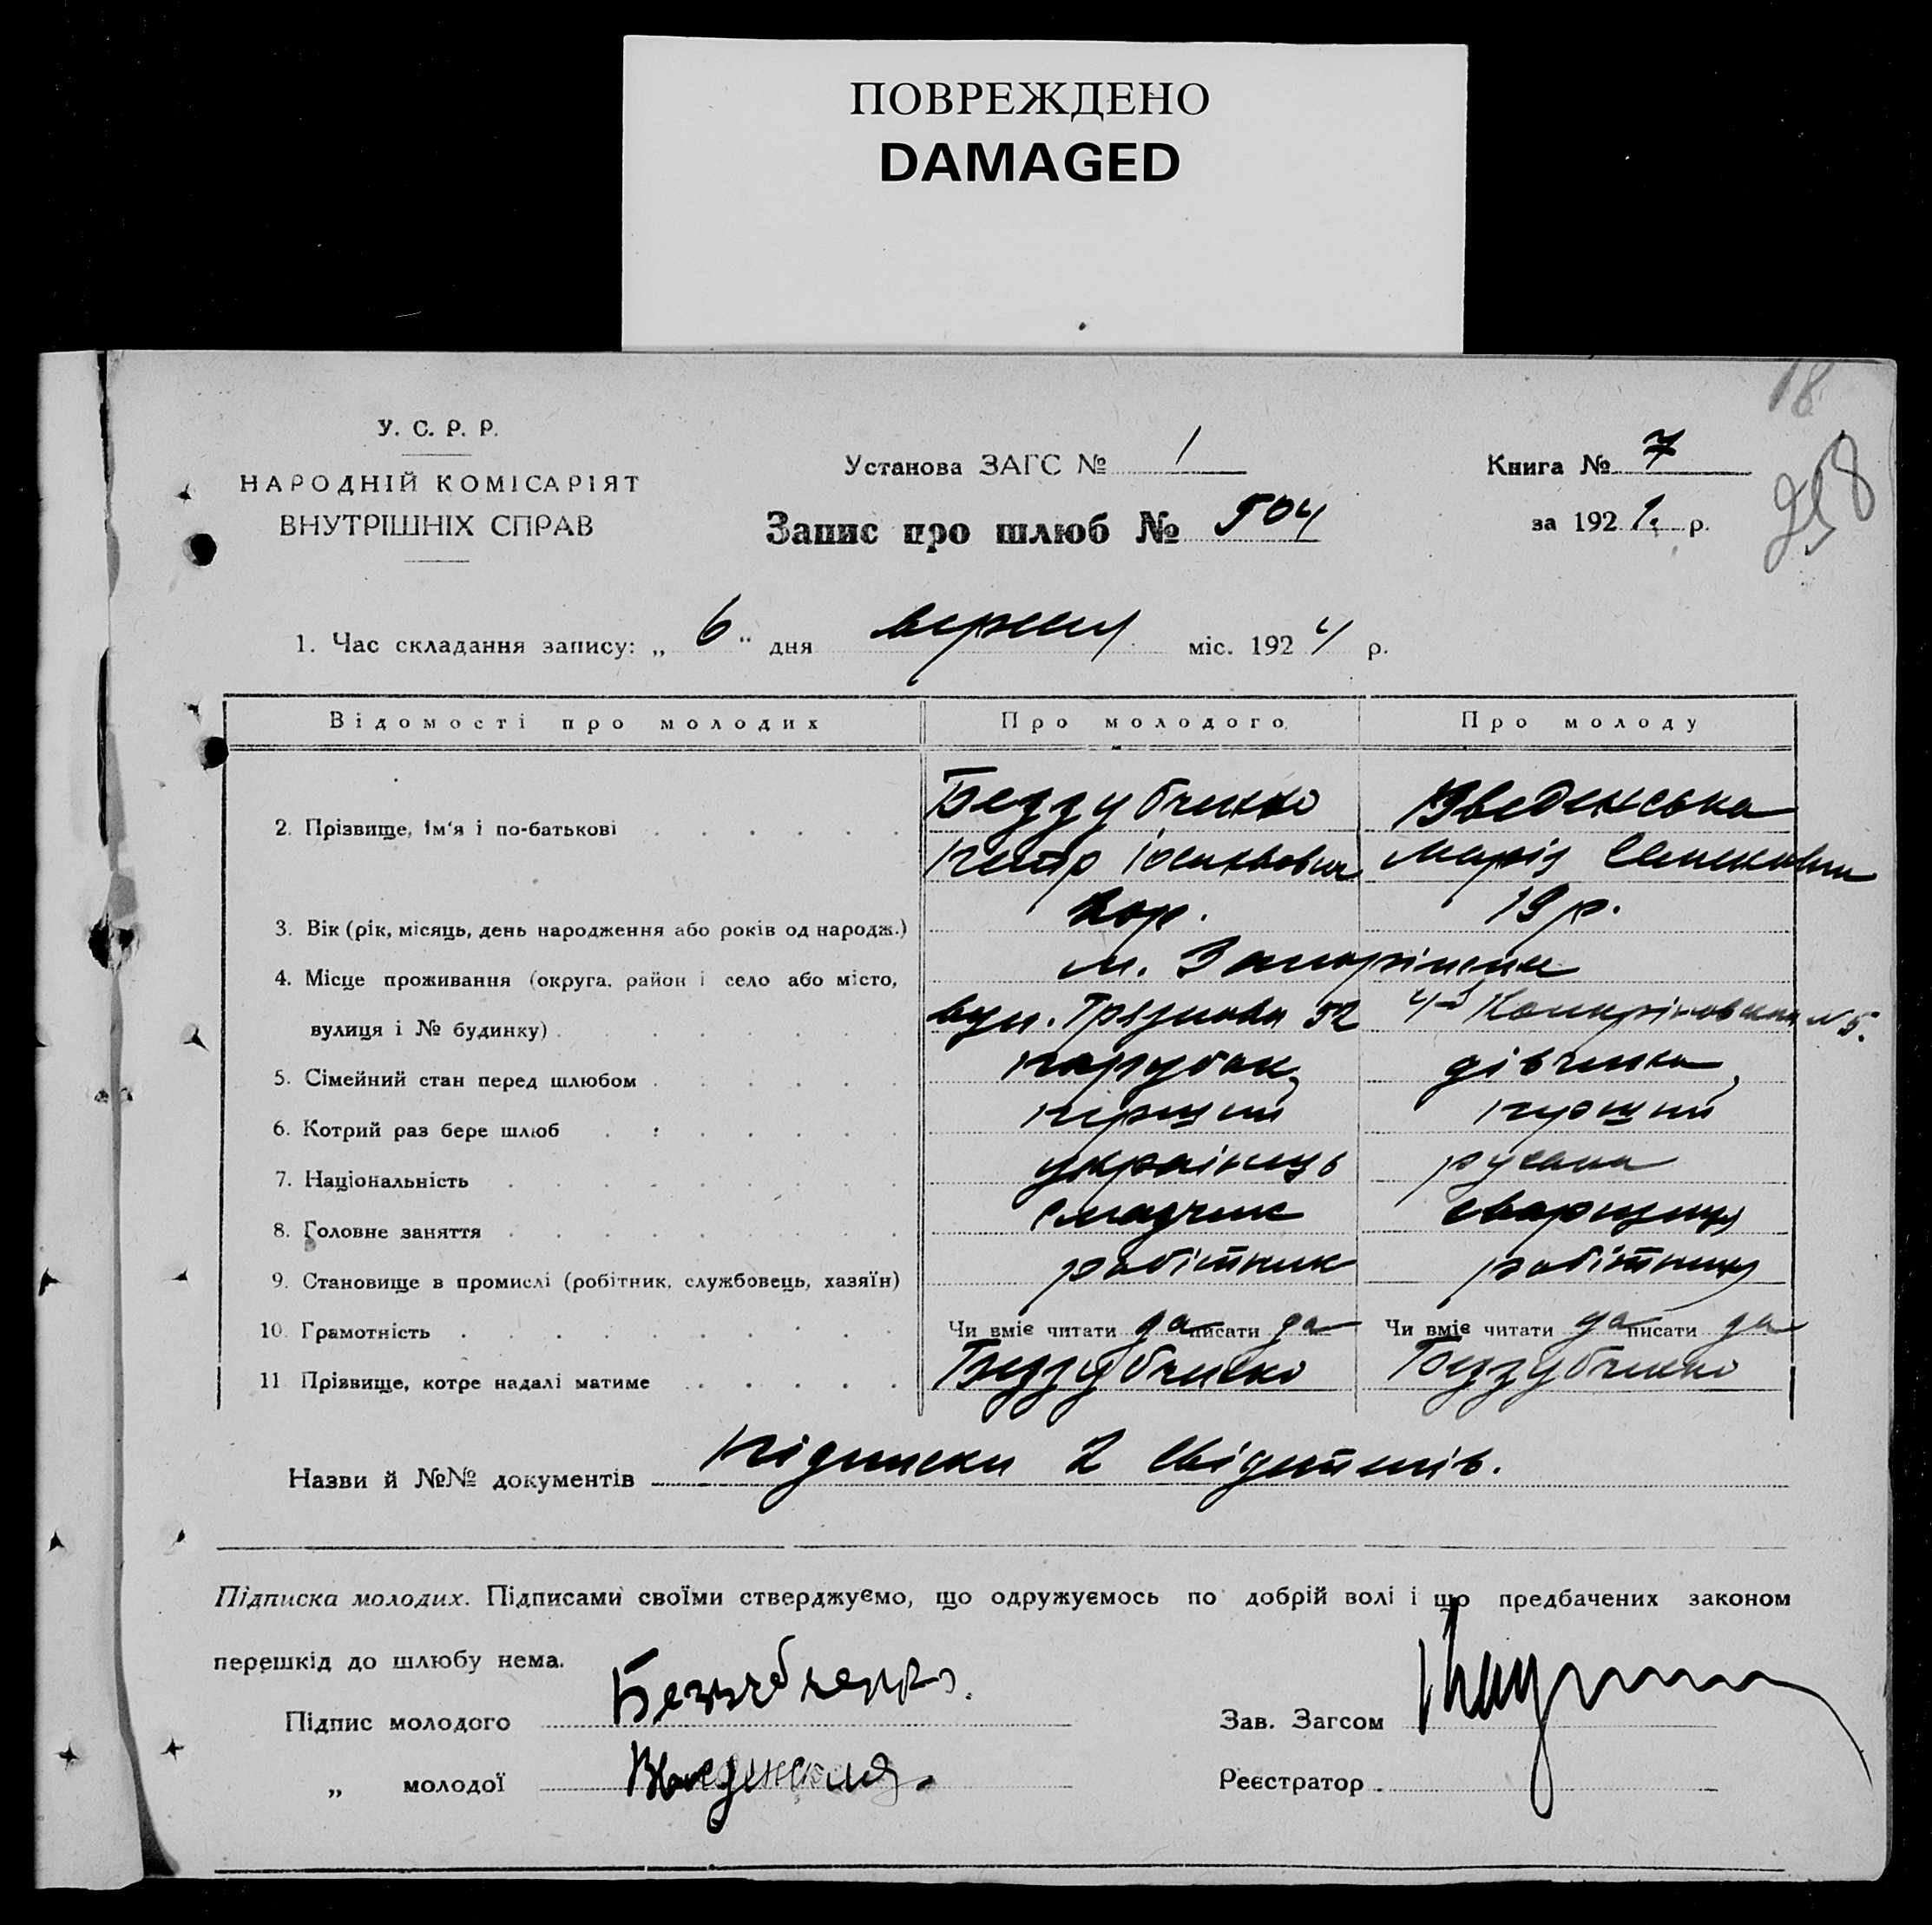 ПОВРЕЖДЕНО
DAMAGED
У. С. Р. Р.
НАРОДНІЙ КОМІСАРІЯТ
ВНУТРІШНІХ СПРАВ
Установа ЗАГС № 1
Запис про шлюб № 504
Книга № 7
за 192 р.
258
1. Час складання запису: „ 6 " дня місяця міс. 192 р.
Відомості про молодих Про молодого Про молоду
2. Прізвище, ім'я і по-батькові Беззубченко Введенська
Петр Марія
3. Вік (рік, місяць, день народження або років од народж.) 19 р.
4. Місце проживання (округа, район і село або місто, м. Запоріжжя
вулиця і № будинку) вул. Грязнова 52 № 5.
5. Сімейний стан перед шлюбом парубак, дівчина,
6. Котрий раз бере шлюб перший перший
7. Національність українець руська
8. Головне заняття
9. Становище в промислі (робітник, службовець, хазяїн) робітник робітниця
10. Грамотність Чи вміє читати да писати да Чи вміє читати да писати да
11 Прізвище, котре надалі матиме Беззубченко Беззубченко
Назви й №№ документів підписки 2 свідитилів.
Підписка молодих. Підписами своїми стверджуємо, що одружуємось по добрій волі і що предбачених законом
перешкід до шлюбу нема.
Підпис молодого Беззубченко.
Зав. Загсом
„ молодої Введенская.
Реєстратор